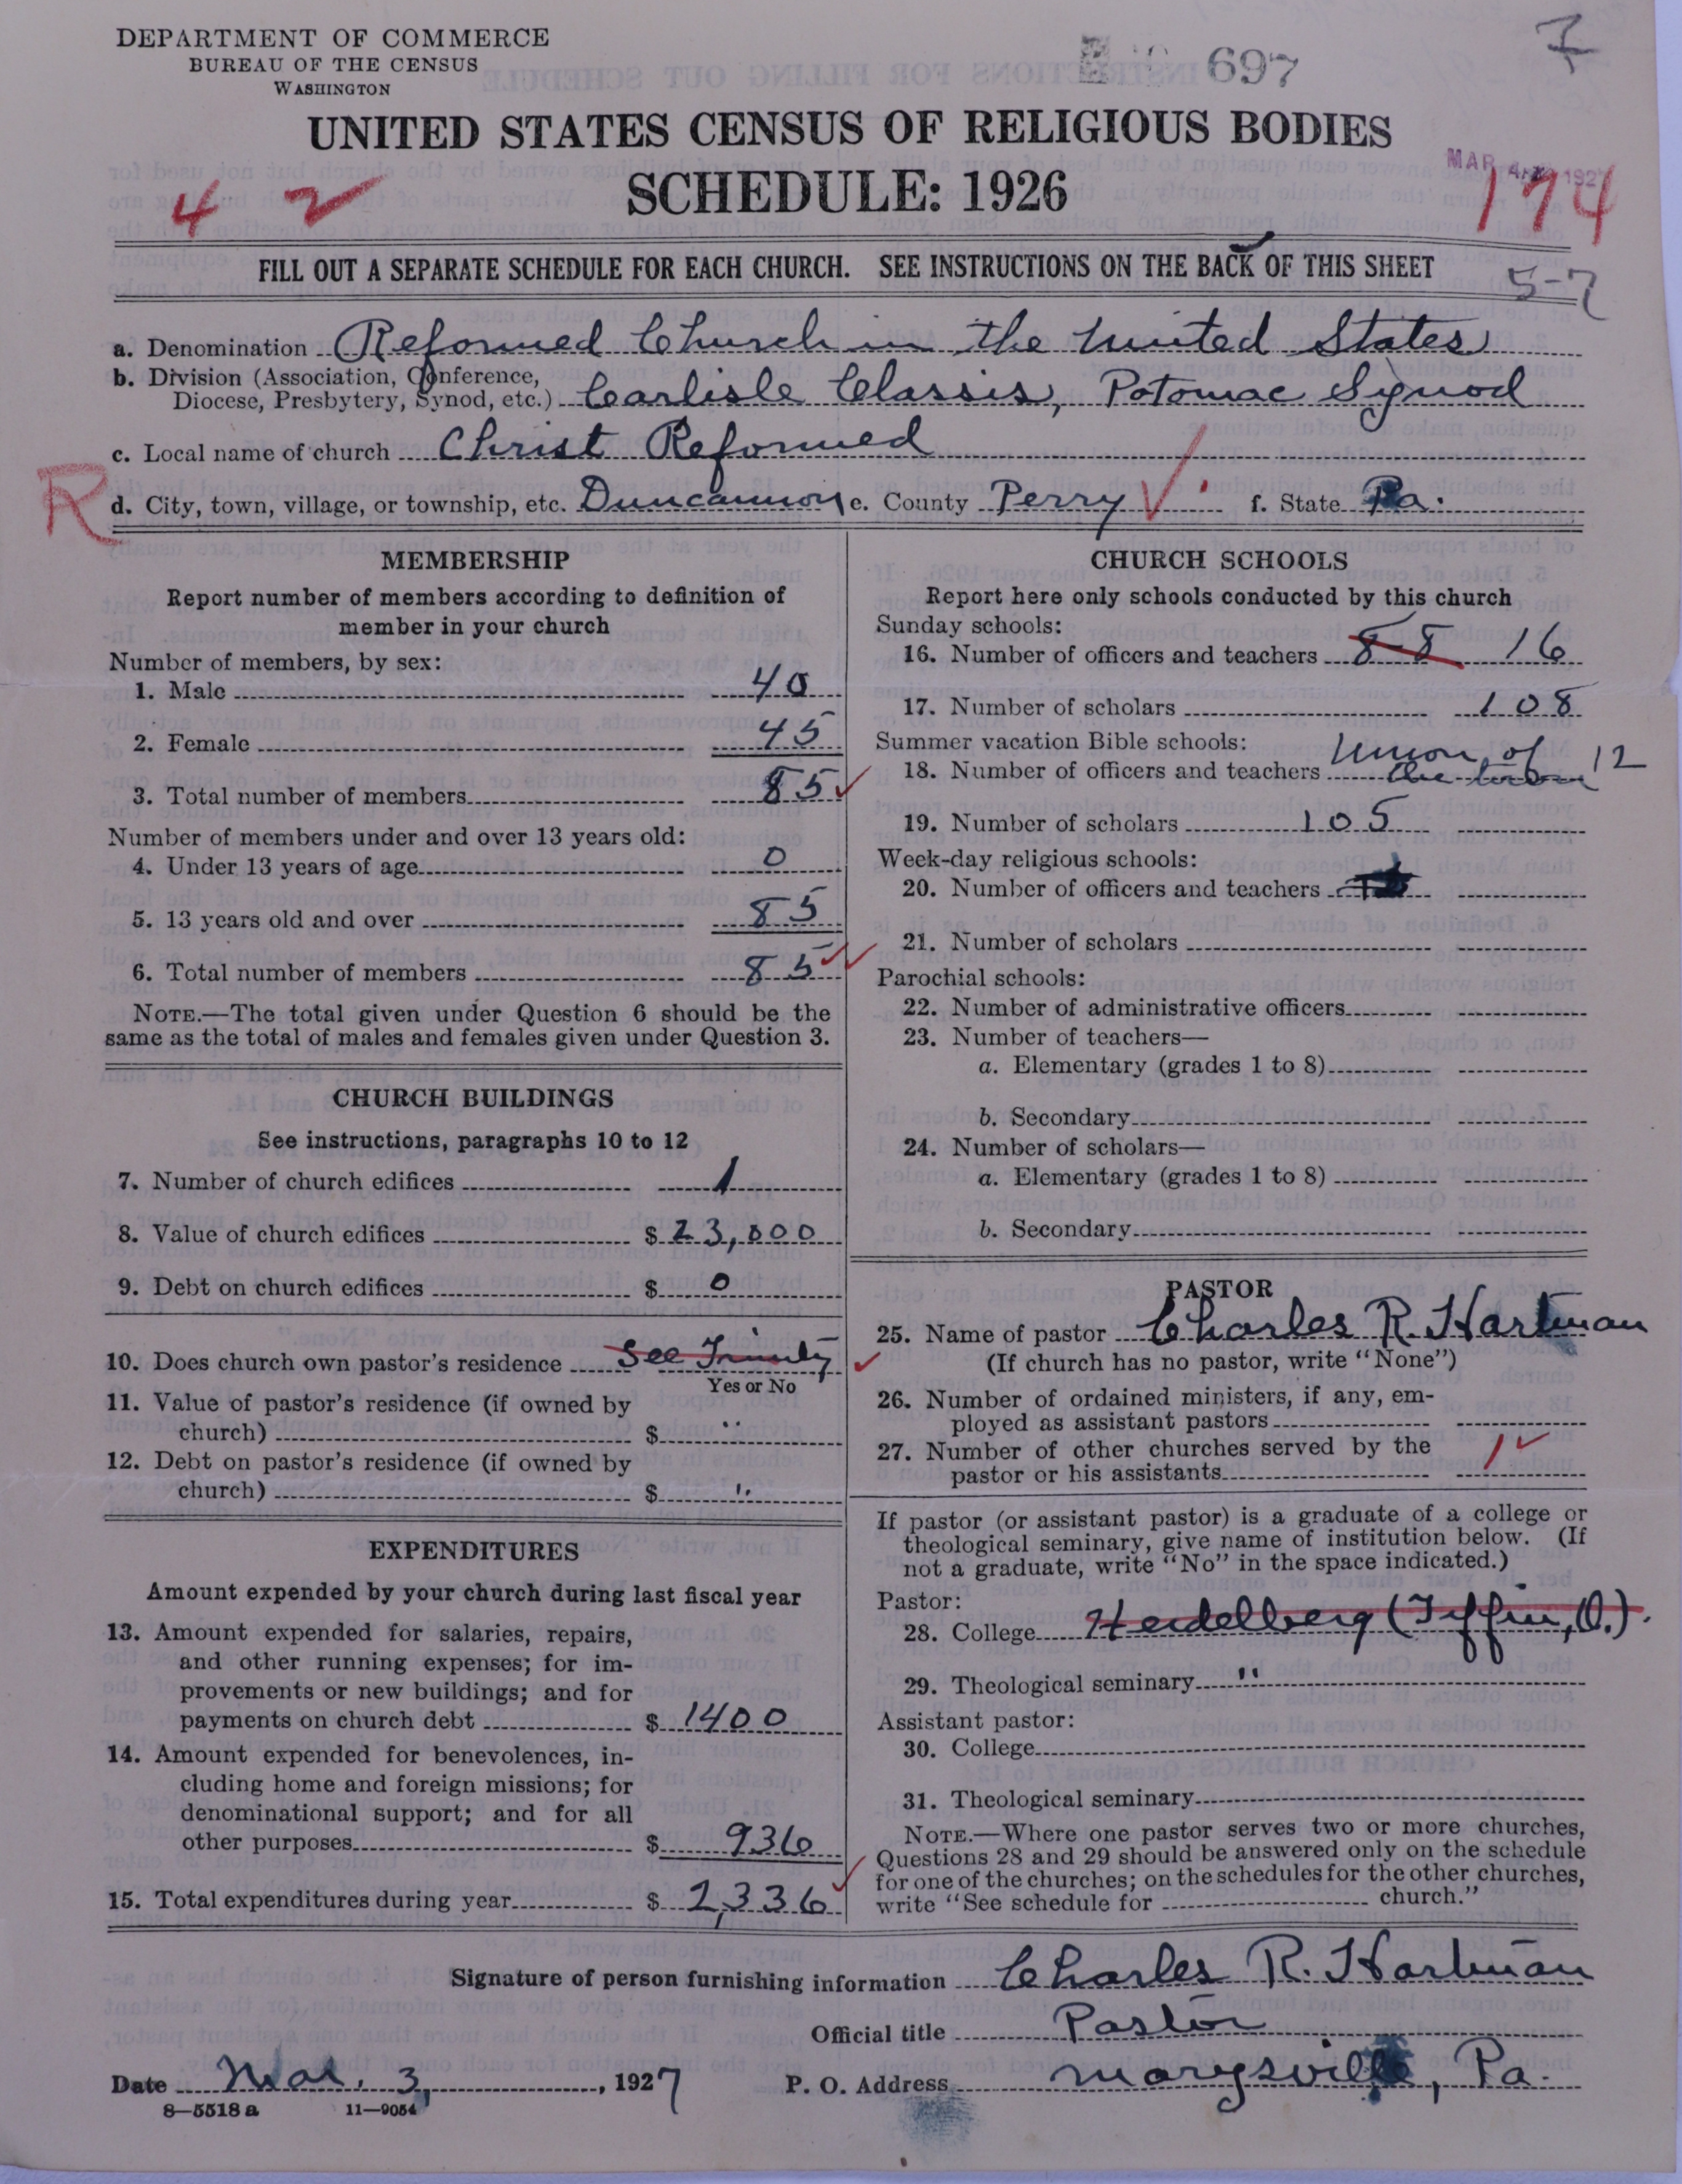 DEPARTMENT OF COMMERCE
BUREAU OF THE CENSUS
WASHINGTON
697
7
UNITED STATES CENSUS OF RELIGIOUS BODIES
SCHEDULE: 1926
4 2
MAR 4 1927
174
FILL OUT A SEPARATE SCHEDULE FOR EACH CHURCH. SEE INSTRUCTIONS ON THE BACK OF THIS SHEET
5-7
a. Denomination Reformed Church in the United States
b. Division (Association, Conference, Diocese, Presbytery, Synod, etc.) Carlisle Classis, Potomac Synod
c. Local name of church Christ Reformed
R
d. City, town, village, or township, etc. Duncannon e. County Perry f. State Pa.
MEMBERSHIP
Report number of members according to definition of
member in your church
Number of members, by sex:
1. Male 40
2. Female 45
3. Total number of members 85
Number of members under and over 13 years old:
4. Under 13 years of age 0
5. 13 years old and over 85
6. Total number of members 85
NOTE.—The total given under Question 6 should be the
same as the total of males and females given under Question 3.
CHURCH BUILDINGS
See instructions, paragraphs 10 to 12
7. Number of church edifices 1
8. Value of church edifices $ 23,000
9. Debt on church edifices $ 0
10. Does church own pastor's residence See Trinity
Yes or No
11. Value of pastor's residence (if owned by
church) $ "
12. Debt on pastor's residence (if owned by
church) $ "
EXPENDITURES
Amount expended by your church during last fiscal year
13. Amount expended for salaries, repairs,
and other running expenses; for im-
provements or new buildings; and for
payments on church debt $ 1400
14. Amount expended for benevolences, in-
cluding home and foreign missions; for
denominational support; and for all
other purposes $ 936
15. Total expenditures during year $ 2,336
CHURCH SCHOOLS
Report here only schools conducted by this church
Sunday schools:
16. Number of officers and teachers 8-8 16
17. Number of scholars 108
Summer vacation Bible schools:
18. Number of officers and teachers Union of the town 12
19. Number of scholars 105
Week-day religious schools:
20. Number of officers and teachers
21. Number of scholars
Parochial schools:
22. Number of administrative officers
23. Number of teachers—
a. Elementary (grades 1 to 8)
b. Secondary
24. Number of scholars—
a. Elementary (grades 1 to 8)
b. Secondary
PASTOR
25. Name of pastor Charles R. Hartman
(If church has no pastor, write "None")
26. Number of ordained ministers, if any, em-
ployed as assistant pastors
27. Number of other churches served by the
pastor or his assistants 1
If pastor (or assistant pastor) is a graduate of a college or
theological seminary, give name of institution below. (If
not a graduate, write "No" in the space indicated.)
Pastor:
28. College Heidelberg (Tiffin, O.)
29. Theological seminary "
Assistant pastor:
30. College
31. Theological seminary
NOTE.—Where one pastor serves two or more churches,
Questions 28 and 29 should be answered only on the schedule
for one of the churches; on the schedules for the other churches,
write "See schedule for church."
Signature of person furnishing information Charles R. Hartman
Official title Pastor
Date Mar. 3, 1927 P. O. Address Marysville, Pa.
8—5518 a 11—9054